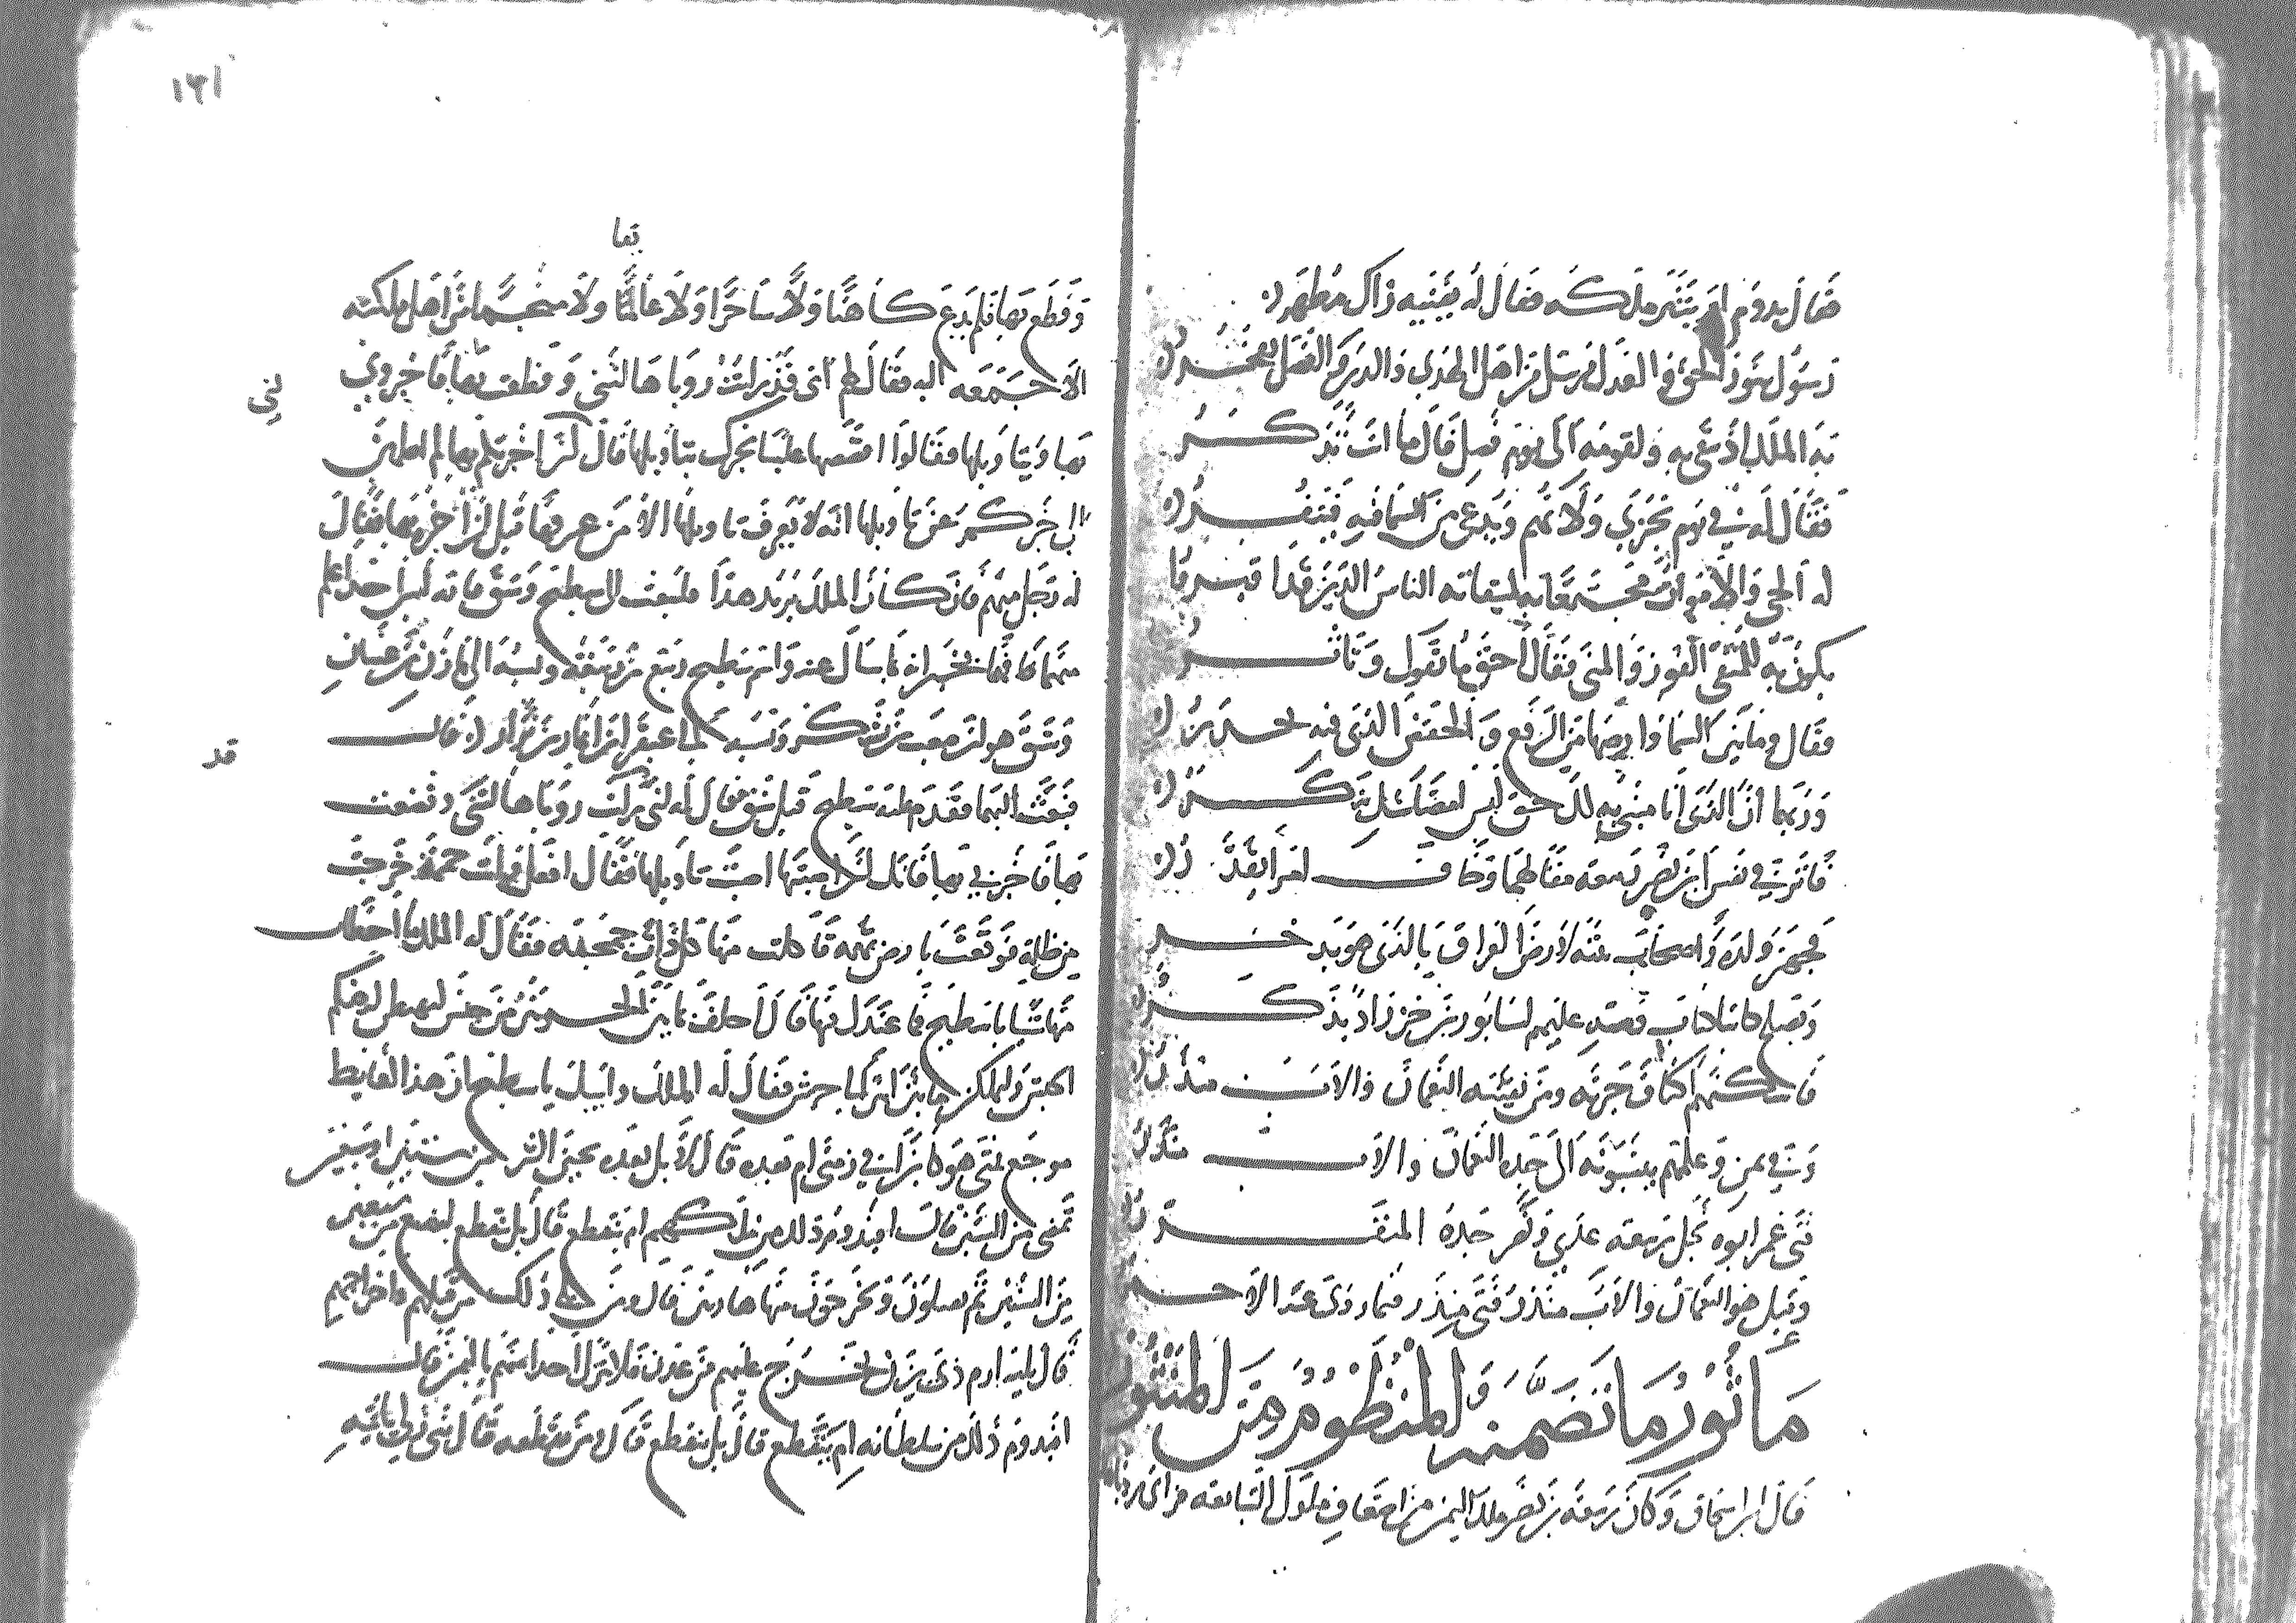 فقال يدوم أم يتبتر ملكه فقال له يفنيه زاك مطهر
رسول هو ذو الحق والعدل مرسل من أهل الهدى والدين والفضل يفخر
به الملك إذ يبقى به ولقومه إلى يوم فصل قال ما أنت تذكر
فقال له في يوم تجزى ولاتهم ويدعى من السما فيه
له الحي والأموات مجتمعا به لميقاته الناس الذين
يكون به للمتقى الفوز والمنى فقال أحق ما تقول
فقال وما بين السما وارضها من الرفع والخفض الذى فيه
وربها أن الذى أنا منبئ به لك حق ليس
فأثر في نفس ابن نصر ربيعة مقالهما وخاف امرا يقدر
فجهز ولده وأصحاب بيته لأرض العراق بالذى هو يدخر
وتصلح كتابا قصد عليهم لسابور بن خرزاد يذكر
فأسكنهم أكناف حيرته ومن بقيته النعمان والأب منذر
وفي يمن وعلمهم ينسبونه إلى جده النعمان والأب منذر
فتى عمرا أبوه نجل ربيعة عدي ونصر جده
وقيل هو النعمان والأب منذر فتى منذر فيما روى عنه الأحمر
مأثور ما تضمنه المنظوم من المنثور
قال ابن إسحاق وكان ربيعة بن نصر ملك اليمن من أضعاف ملوك التبابعة فرأى رؤيا
١٢١
وفظع بها فلم يدع كاهنا ولا ساحرا ولا عائفا ولا منجما من أهل مملكته
الا جمعه اليه فقال لهم اني قد رايت رويا هالتني وفظعت بها فاخبروني
لني
بها وبتاويلها فقالوا اقصصها علينا نخبرك بتاويلها قال ان اخبرتكم بها لم اطمئن
الى خبركم عن تاويلها انه لا يعرف تاويلها الا من عرفها قبل ان اخبره بها فقال
له رجل منهم فان كان الملك يريد هذا فليبعث الى سطيح وشق فانه ليس احد اعلم
منهما فهما يخبرانه بما سال عنه واسم سطيح ربيع بن ربيعة ونسبه الى مازن بن غسان
وشق هو ابن صعب بن يشكر ونسبه الى عبقر بن انمار بن نزار قال
قد
فبعث اليهما فقدم عليه سطيح قبل شق فقال له اني رايت رويا هالتني وفظعت
بها فاخبرني بها فانك ان اصبتها اصبت تاويلها فقال افعل رايت حممة خرجت
من ظلمة فوقعت بارض تهمة فاكلت منها كل ذات جمجمة فقال له الملك ما اخطات
منها شيا يا سطيح فما عندك فيها قال احلف بما بين الحرتين من حنش ليهبطن ارضكم
الحبش وليملكن ما بين ابين الى جرش فقال له الملك وابيك يا سطيح ان هذا لغايظ
موجع فمتى هو كاين افي زمني ام بعده قال لا بل بعده بحين اكثر من ستين او سبعين
تمضى من السنين قال افيدوم ذلك من ملكهم ام ينقطع قال بل ينقطع لبضع وسبعين
من السنين ثم يقتلون ويخرجون منها هاربين قال ومن يلي ذلك من قتلهم واخراجهم
قال يليه ارم ذى يزن يخرج عليهم من عدن فلا يترك احدا منهم باليمن قال
افيدوم ذلك من سلطانه ام ينقطع قال بل ينقطع قال ومن يقطعه قال نبي زكي ياتيه